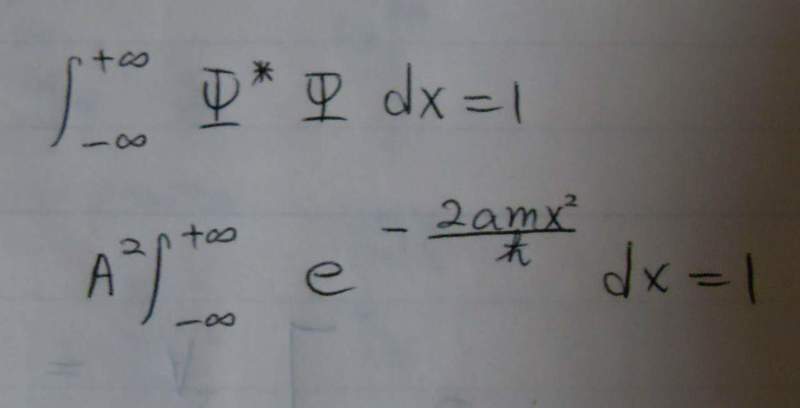 ∫_{-∞}^{+∞} Ψ* Ψ dx = 1
A² ∫_{-∞}^{+∞} e^{-\frac{2amx²}{ħ}} dx = 1